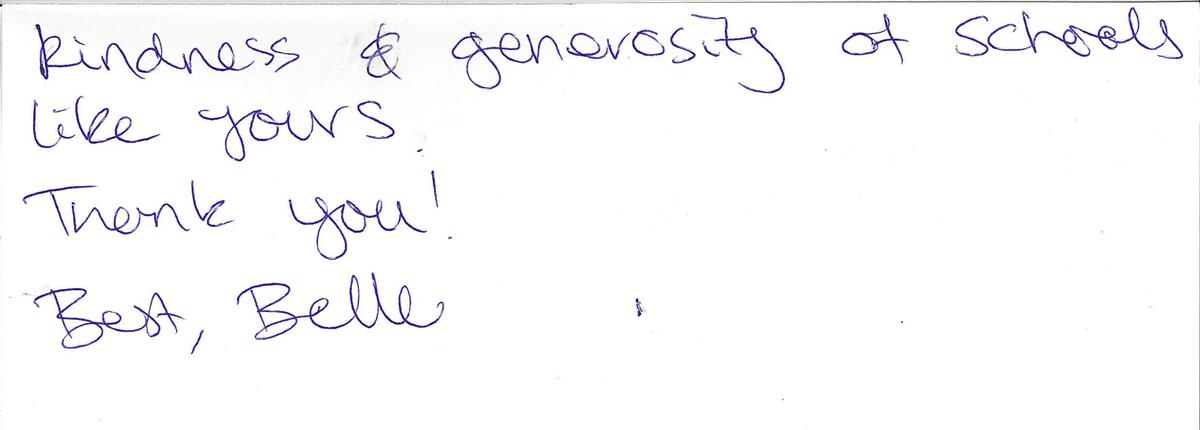 kindness & generosity of schools
like yours.
Thank you!
Best, Belle